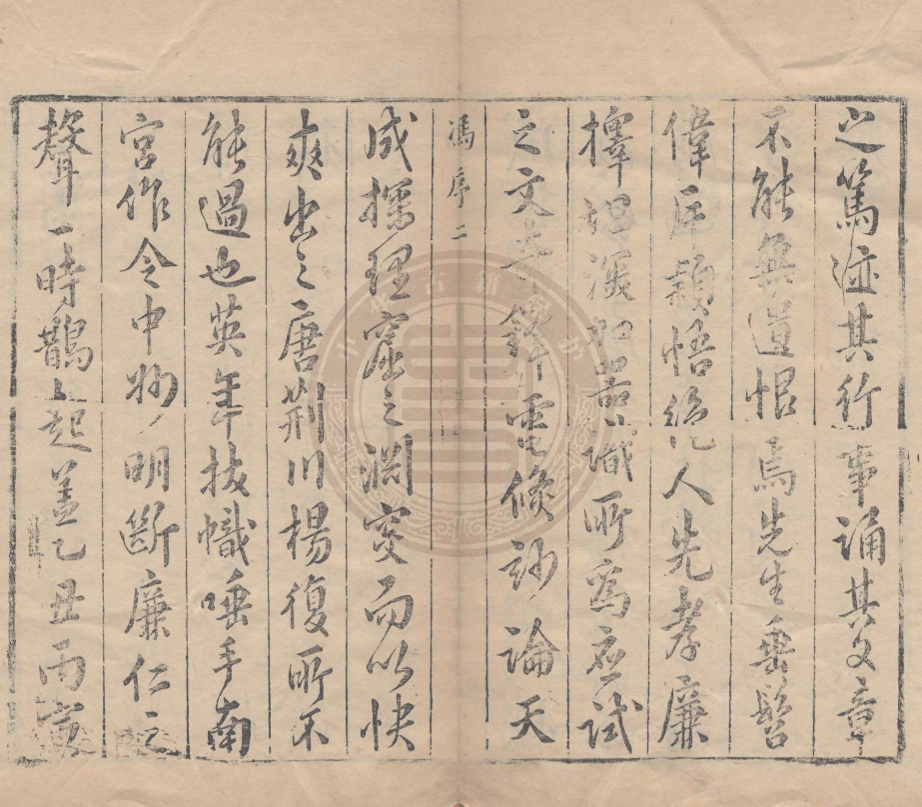 之篤迹其行事誦其文章
不能無遺恨焉先生垂髫
偉岸穎悟絕人先孝廉
擇嫓深加器識所為應試
之文奇鋒電倏紗論天
馮序 二
成探理窟之淵突而以快
爽出之唐荊川楊復所不
能過也英年拔幟唾手南
宮作令中州明斷廉仁之
聲一時鵲起蓋乙丑丙寅